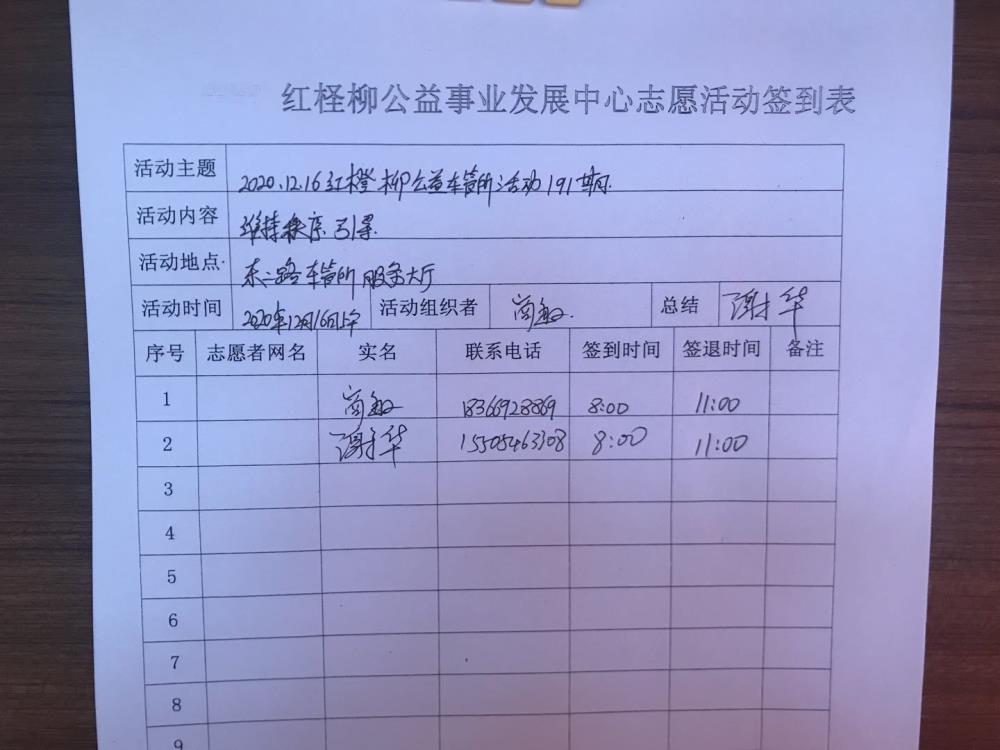 红柽柳公益事业发展中心志愿活动签到表
活动主题 2020.12.16红橙柳公益车管所活动191期
活动内容 维持秩序 引导
活动地点 东二路车管所服务大厅
活动时间 2020年12月16日上午 活动组织者 商敏 总结 谢才华
序号 志愿者网名 实名 联系电话 签到时间 签退时间 备注
1 商敏 18366928869 8:00 11:00
2 谢才华 15505463308 8:00 11:00
3
4
5
6
7
8
9